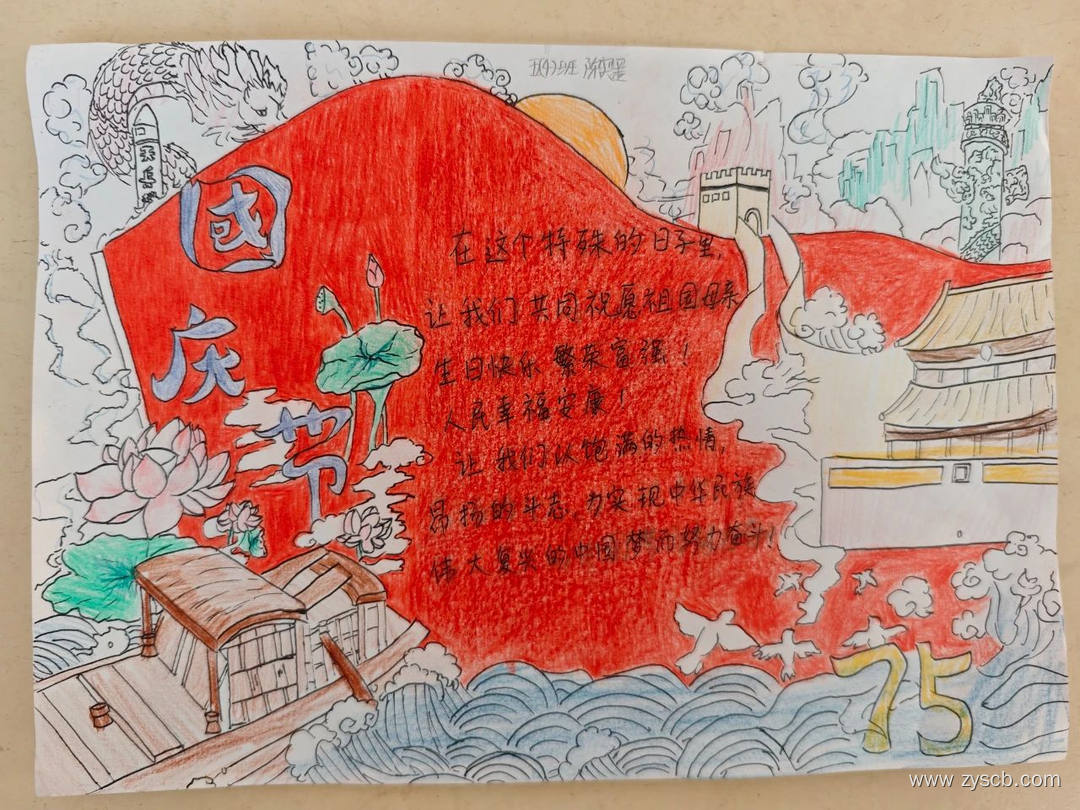 國
庆
节
在这个特殊的日子里,
让我们共同祝愿祖国母亲
生日快乐 繁荣富强!
人民幸福安康!
让我们以饱满的热情,
昂扬的斗志,为实现中华民族
伟大复兴的中国梦而努力奋斗!
75
www.zyscb.com